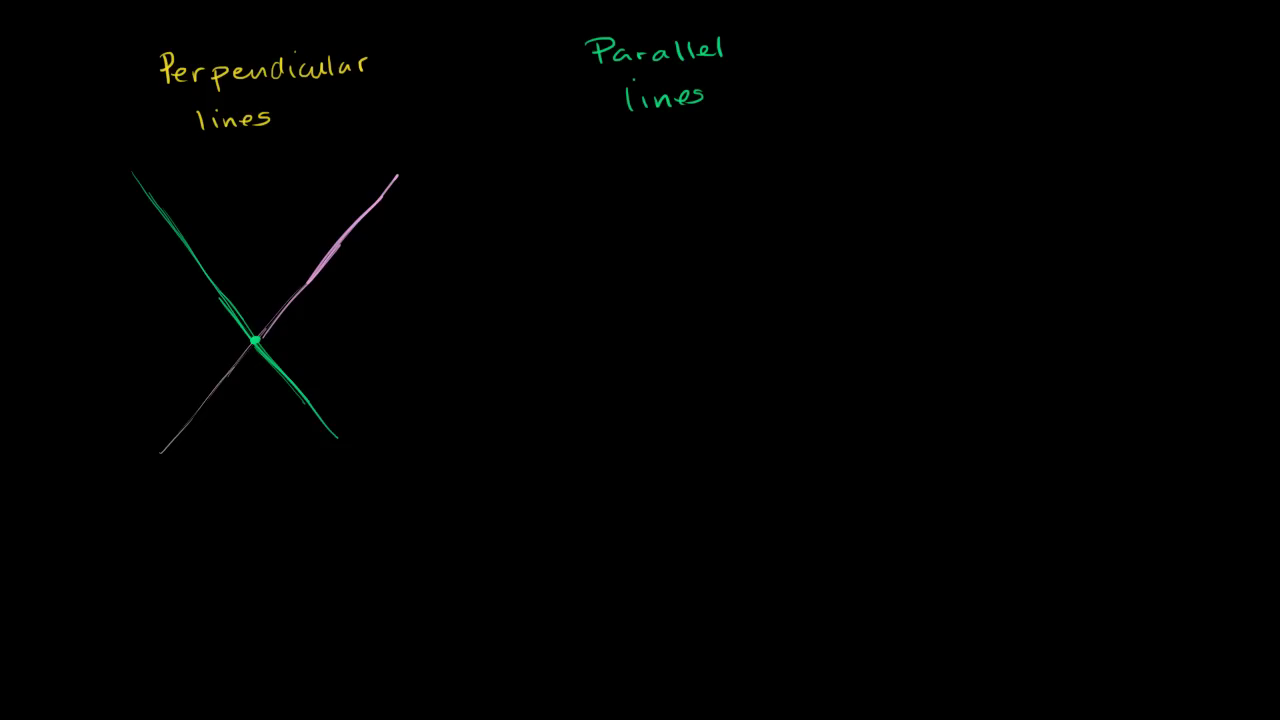 Perpendicular
lines
Parallel
lines